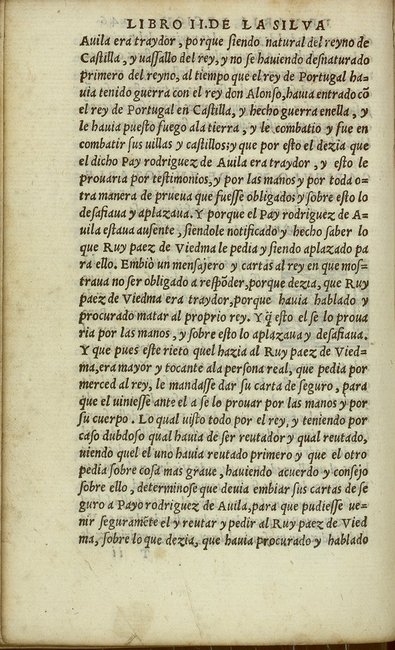 LIBRO II. DE LA SILVA
Auila era traydor, porque siendo natural del reyno de
Castilla, y uassallo del rey, y no se hauiendo desnaturado
primero del reyno, al tiempo que el rey de Portugal ha-
uia tenido guerra con el rey don Alonso, hauia entrado cõ
el rey de Portugal en Castilla, y hecho guerra enella, y
le hauia puesto fuego ala tierra, y le combatio y fue en
combatir sus uillas y castillos: y que por esto el dezia que
el dicho Pay rodriguez de Auila era traydor, y esto le
prouaria por testimonios, y por las manos y por toda o-
tra manera de prueua que fuesse obligado: y sobre esto lo
desafiaua y aplazaua. Y porque el Pay rodriguez de A-
uila estaua ausente, siendole notificado y hecho saber lo
que Ruy paez de Viedma le pedia y siendo aplazado pa
ra ello. Embiò un mensajero y cartas al rey en que mos-
traua no ser obligado a respõder, porque dezia, que Ruy
paez de Viedma era traydor, porque hauia hablado y
procurado matar al proprio rey. Y q̃ esto el se lo proua
ria por las manos, y sobre esto lo aplazaua y desafiaua.
Y que pues este rieto quel hazia al Ruy paez de Vied-
ma, era mayor y tocante ala persona real, que pedia por
merced al rey, le mandasse dar su carta de seguro, para
que el uiniesse ante el a se lo prouar por las manos y por
su cuerpo. Lo qual uisto todo por el rey, y teniendo por
caso dubdoso qual hauia de ser reutador y qual reutado,
uiendo quel el uno hauia reutado primero y que el otro
pedia sobre cosa mas graue, hauiendo acuerdo y consejo
sobre ello, determinose que deuia embiar sus cartas de se
guro a Payo rodriguez de Auila, para que pudiesse ue-
nir seguramẽte el y reutar y pedir al Ruy paez de Vied
ma, sobre lo que dezia, que hauia procurado y hablado